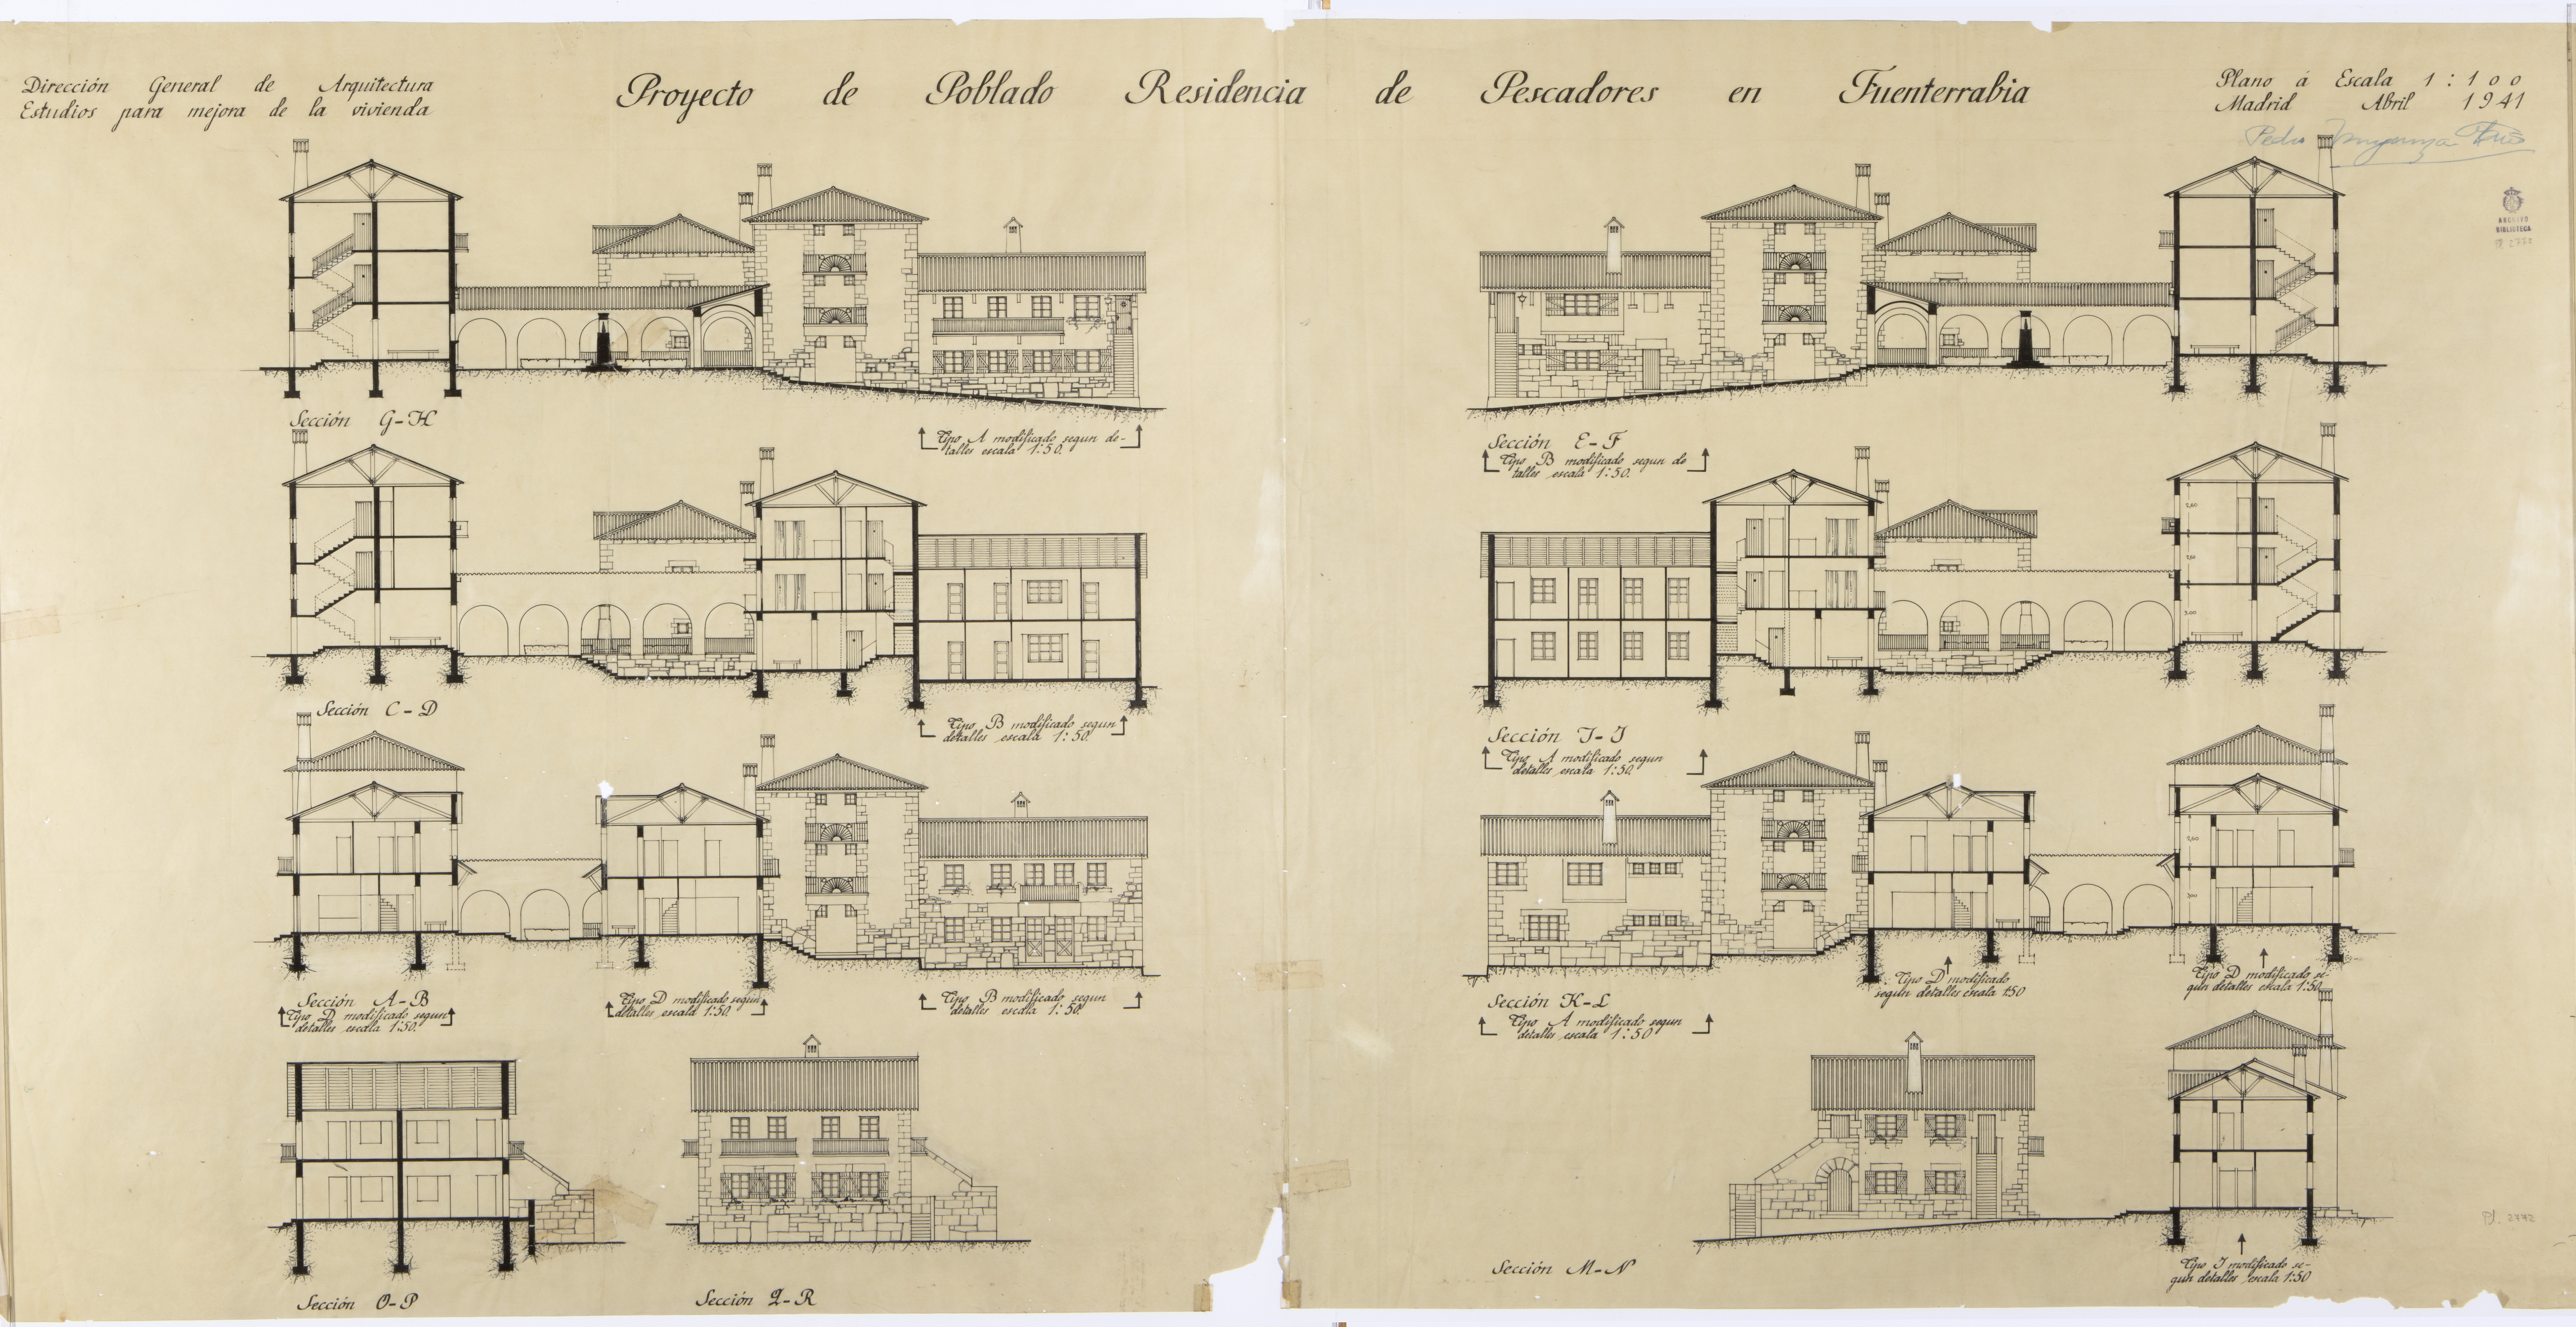 Dirección General de Arquitectura
Estudios para mejora de la vivienda
Proyecto de Poblado Residencia de Pescadores en Fuenterrabia
Plano á Escala 1:100
Madrid Abril 1941
Pedro
ARCHIVO
BIBLIOTECA
Sección G-H
Tipo A modificado segun de-
talles escala 1:50.
Sección E-F
Tipo B modificado segun de
talles escala 1:50.
Sección C-D
Tipo B modificado segun
detalles escala 1:50.
Sección I-J
Tipo A modificado segun
detalles escala 1:50.
2,60
3,00
Sección A-B
Tipo D modificado segun
detalles escala 1:50.
Tipo D modificado segun
detalles escala 1:50.
Tipo B modificado segun
detalles escala 1:50
Sección K-L
Tipo A modificado segun
detalles escala 1:50
Tipo D modificado
segun detalles escala 1:50
Tipo D modificado se-
gun detalles escala 1:50
2,60
3,00
Sección O-P
Sección Q-R
Sección M-N
Tipo I modificado se-
gun detalles escala 1:50